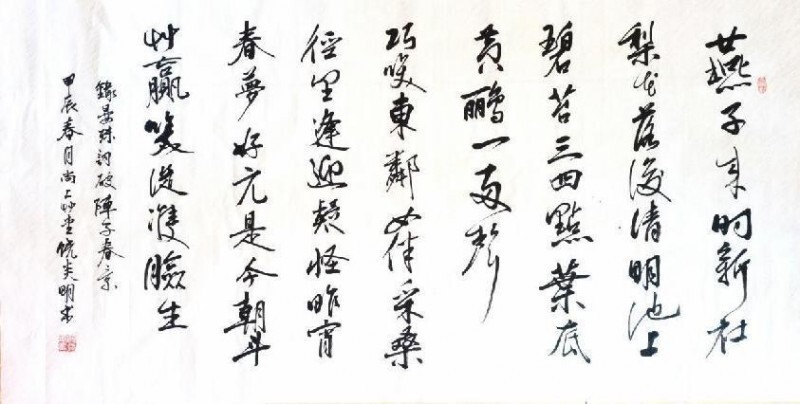 燕子来时新社
梨花落後清明池上
碧苔三四點葉底
黄鸝一兩聲
巧笑東鄰女伴采桑
徑里逢迎疑怪昨宵
春夢好元是今朝斗
艸贏笑從雙臉生
錄晏殊詞破陣子春景
甲辰春月尚上艸堂